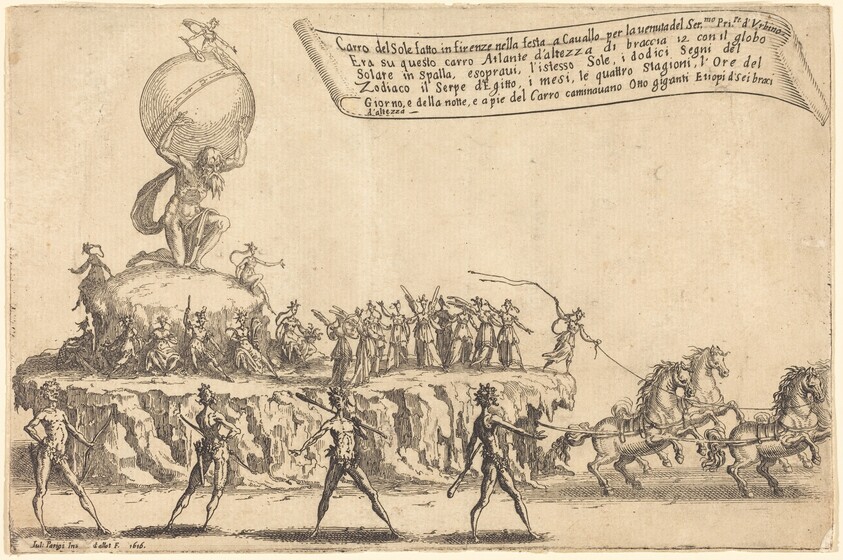 Carro del Sole fatto in firenze nella festa a Cauallo per la uenuta del Ser.mo Pri.pe d'Urbino
Era su questo carro Atlante d'altezza di braccia 12 con il globo
Solare in Spalla, e sopraui, l'istesso Sole, i dodici Segni del
Zodiaco il Serpe d'Egitto, i mesi, le quattro Stagioni, l'Ore del
Giorno, e della notte, e a pie del Carro caminauano Otto giganti Etiopi d'Sei braci
d'altezza
Iul. Parigi Inv. Callot F. 1616.